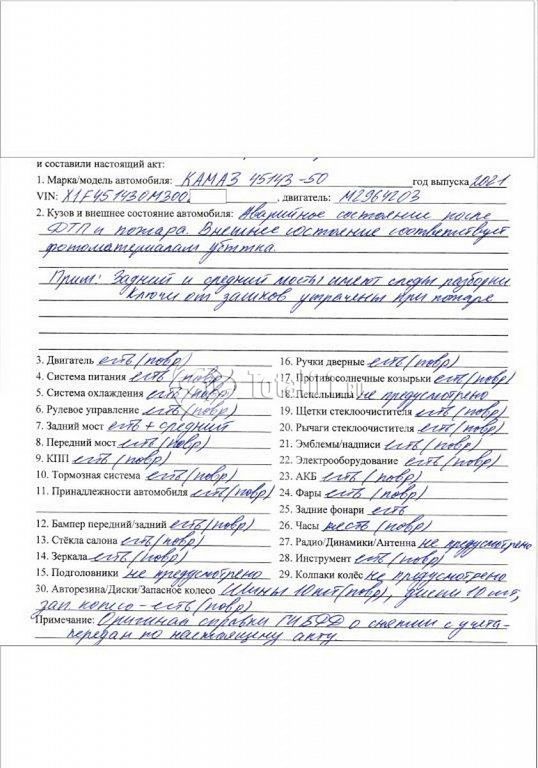 и составили настоящий акт:
1. Марка/модель автомобиля: КАМАЗ 45143-50 год выпуска 2021
VIN: X1F451430M300 , двигатель: M2964203
2. Кузов и внешнее состояние автомобиля: Аварийное состояние после
ДТП и пожара. Внешнее состояние соответствует
фотоматериалам убытка.
Прим: Задний и средний мосты имеют следы разборки
Ключи от замков утрачены при пожаре
3. Двигатель есть (повр)
4. Система питания есть (повр)
5. Система охлаждения есть (повр)
6. Рулевое управление есть (повр)
7. Задний мост есть + средний
8. Передний мост есть (повр)
9. КПП есть (повр)
10. Тормозная система есть (повр)
11. Принадлежности автомобиля есть (повр)
12. Бампер передний/задний есть (повр)
13. Стёкла салона есть (повр)
14. Зеркала есть (повр)
15. Подголовники не предусмотрено
16. Ручки дверные есть (повр)
17. Противосолнечные козырьки есть (повр)
18. Пепельницы не предусмотрено
19. Щетки стеклоочистителя есть (повр)
20. Рычаги стеклоочистителя есть (повр)
21. Эмблемы/надписи есть (повр)
22. Электрооборудование есть (повр)
23. АКБ есть (повр)
24. Фары есть (повр)
25. Задние фонари есть
26. Часы есть (повр)
27. Радио/Динамики/Антенна не предусмотрено
28. Инструмент есть (повр)
29. Колпаки колёс не предусмотрено
30. Авторезина/Диски/Запасное колесо Шины 10 шт (повр), диски 10 шт,
зап. колесо - есть (повр)
Примечание: Оригинал справки ГИБДД о снятии с учета -
передан по настоящему акту